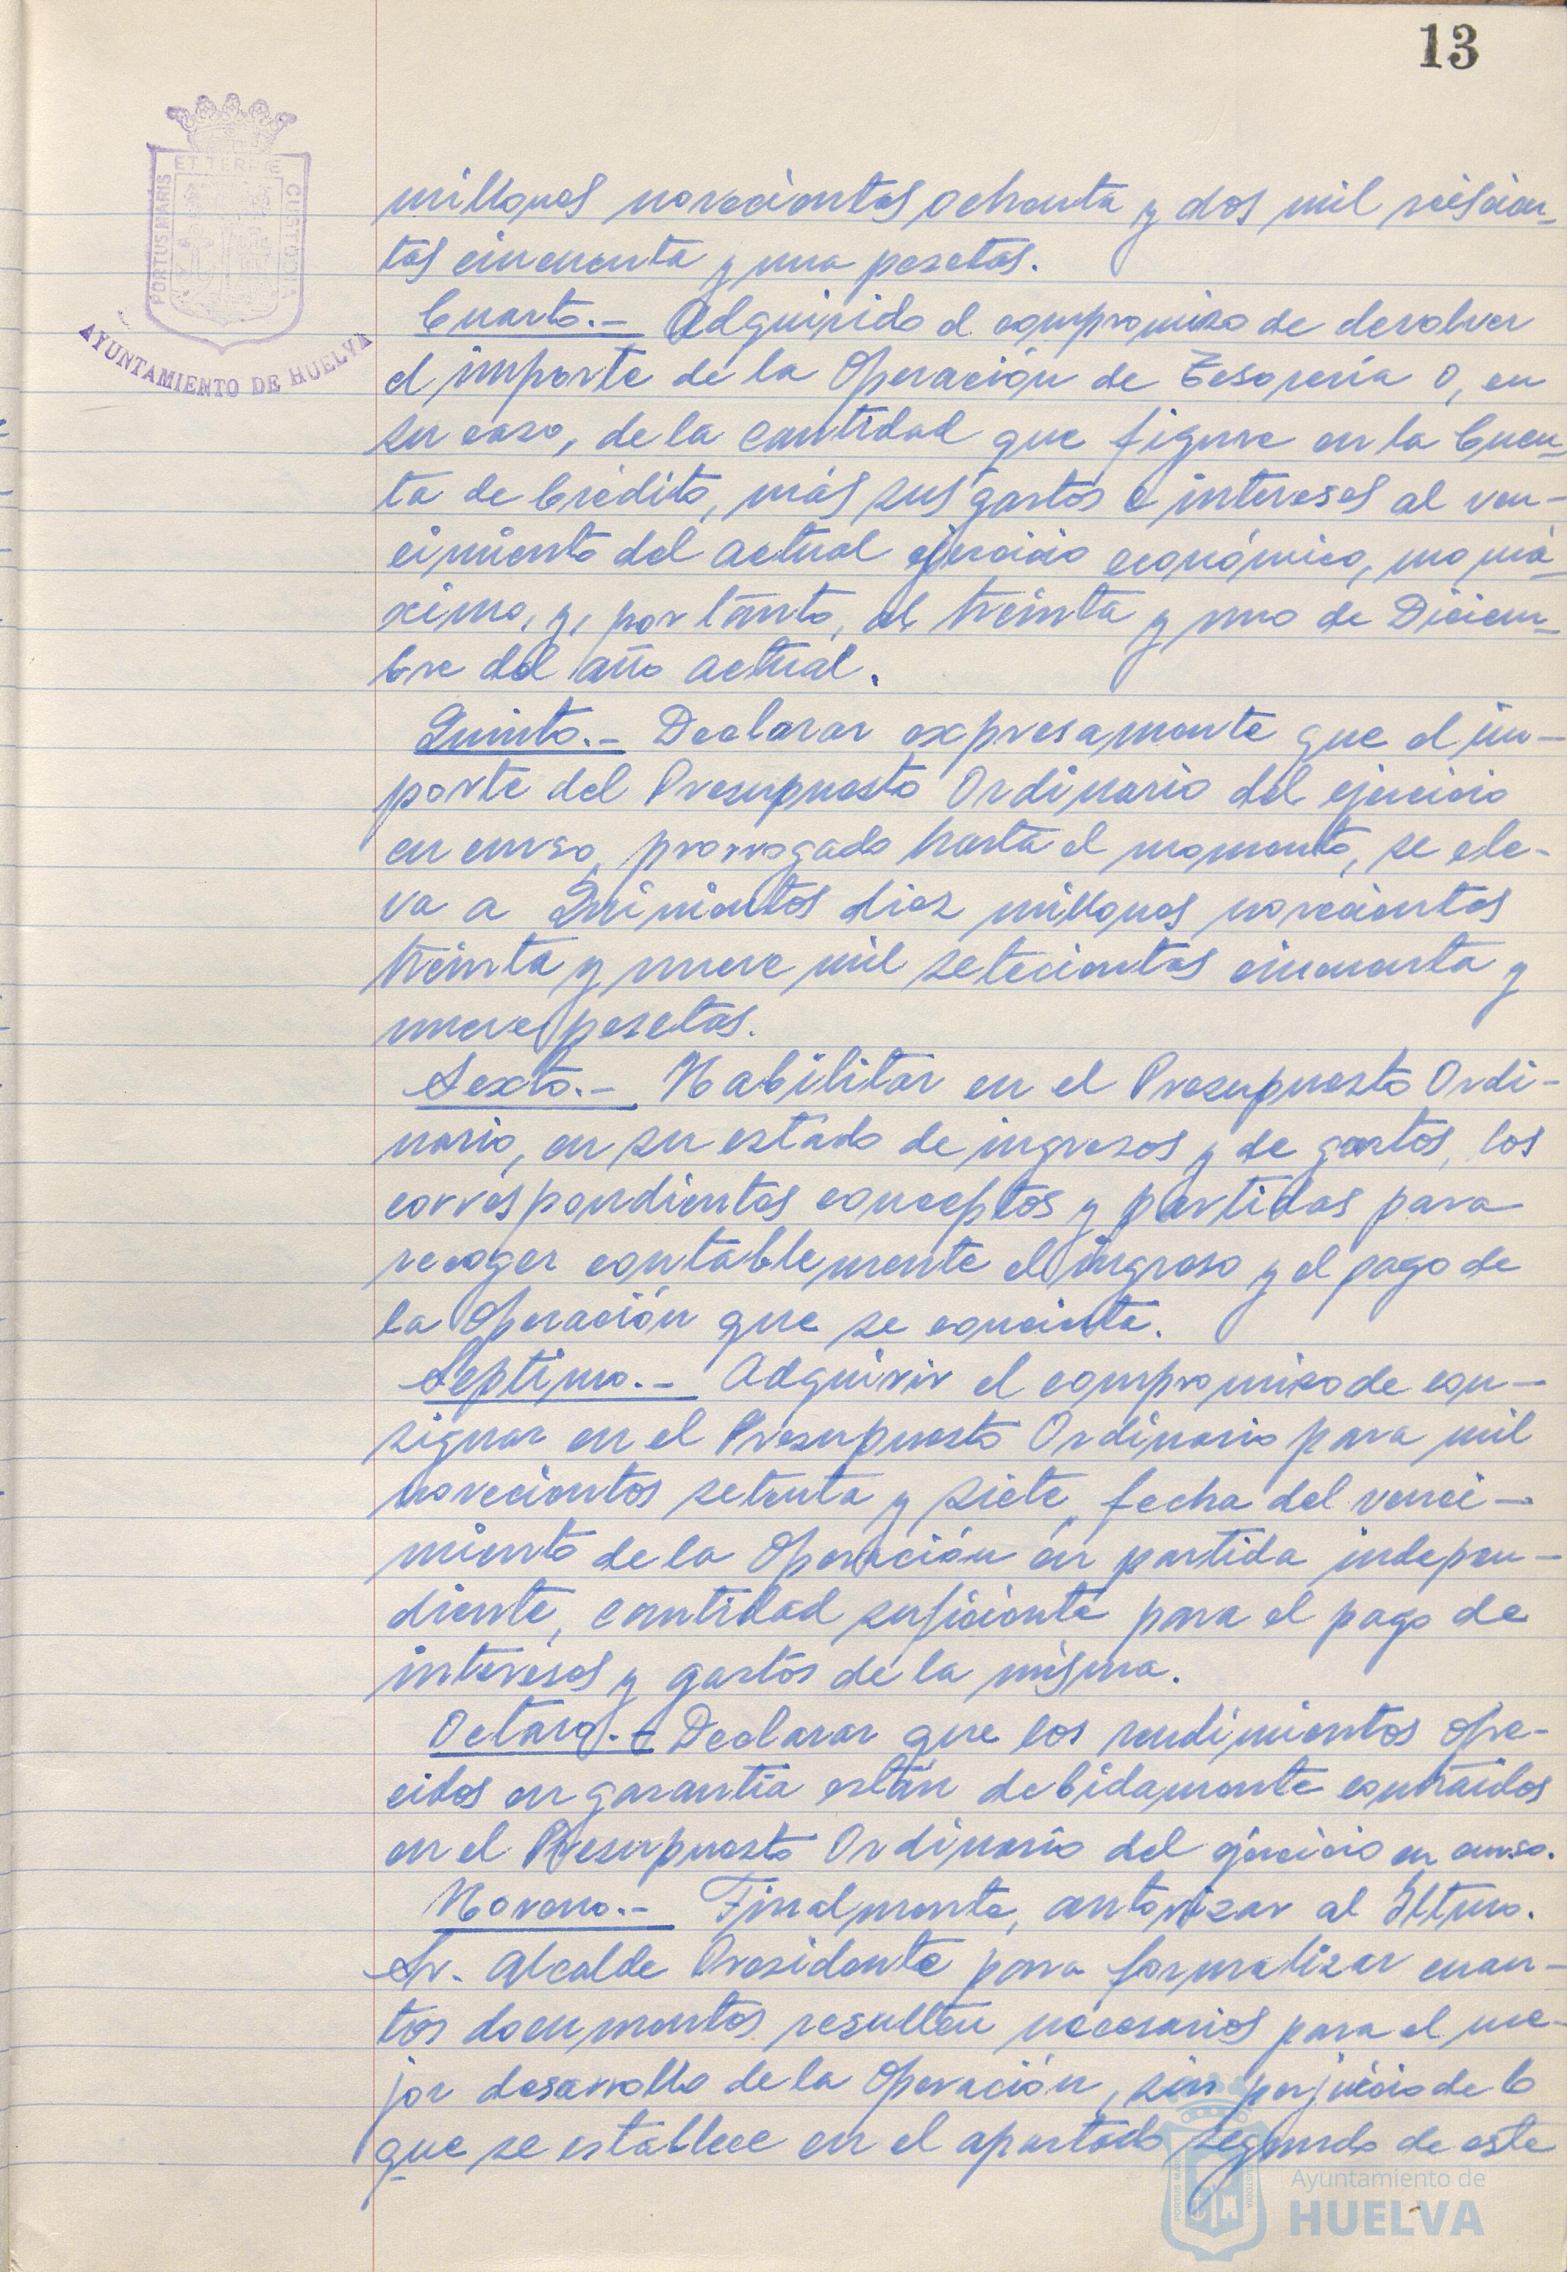 13
ET TERRE
PORTUS MARIS
CUSTODIA
AYUNTAMIENTO DE HUELVA
millones novecientas ochenta y dos mil seiscien-
tas cincuenta y una pesetas.
Cuarto.- Adquirido el compromiso de devolver
el importe de la Operación de Tesorería o, en
su caso, de la cantidad que figure en la Cuen-
ta de Crédito, más sus gastos e intereses al ven-
cimiento del actual ejercicio económico, como má-
ximo, y, por tanto, al treinta y uno de Diciem-
bre del año actual.
Quinto.- Declarar expresamente que el im-
porte del Presupuesto Ordinario del ejercicio
en curso, prorrogado hasta el momento, se ele-
va a Quinientos diez millones novecientas
treinta y nueve mil setecientas cincuenta y
nueve pesetas.
Sexto.- Habilitar en el Presupuesto Ordi-
nario, en su estado de ingresos y de gastos, los
correspondientes conceptos y partidas para
recoger contablemente el ingreso y el pago de
la Operación que se concierta.
Septimo.- Adquirir el compromiso de con-
signar en el Presupuesto Ordinario para mil
novecientos setenta y siete, fecha del venci-
miento de la Operación en partida indepen-
diente, cantidad suficiente para el pago de
intereses y gastos de la misma.
Octavo.- Declarar que los rendimientos ofre-
cidos en garantía están debidamente contraidos
en el Presupuesto Ordinario del ejercicio en curso.
Noveno.- Finalmente, autorizar al Iltmo.
Sr. Alcalde Presidente para formalizar cuan-
tos documentos resulten necesarios para el me-
jor desarrollo de la Operación, sin perjuicio de lo
que se establece en el apartado segundo de este
Ayuntamiento de
HUELVA